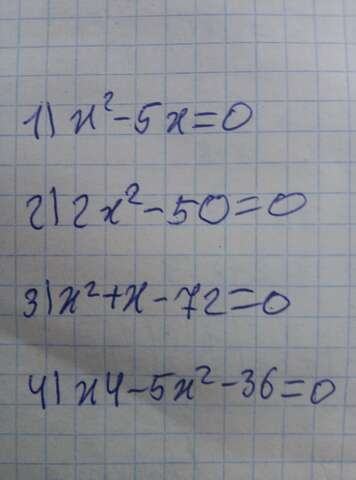 1) x²-5x=0
2) 2x²-50=0
3) x²+x-72=0
4) x4-5x²-36=0